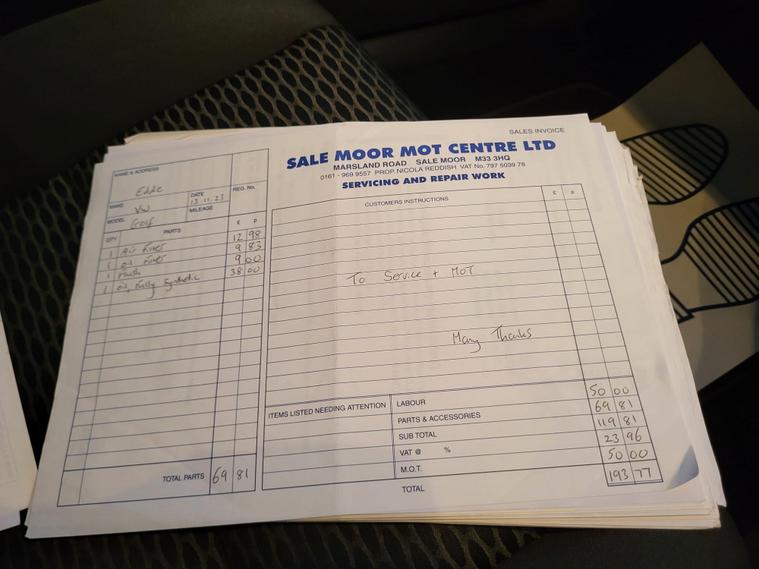 SALES INVOICE
SALE MOOR MOT CENTRE LTD
MARSLAND ROAD SALE MOOR M33 3HQ
0161 - 969 9557 PROP. NICOLA REDDISH VAT No. 797 5039 78
SERVICING AND REPAIR WORK
NAME & ADDRESS
Eddie
MAKE VW
DATE 13.11.23
REG. No.
MODEL Golf
MILEAGE
QTY PARTS £ P
1 Air Filter 12 98
1 Oil Filter 9 83
1 9 00
1 Oil, Fully Synthetic 38 00
TOTAL PARTS 69 81
CUSTOMERS INSTRUCTIONS £ P
To Service + MOT
Many Thanks
ITEMS LISTED NEEDING ATTENTION
LABOUR 50 00
PARTS & ACCESSORIES 69 81
SUB TOTAL 119 81
VAT @ % 23 96
M.O.T. 50 00
TOTAL 193 77